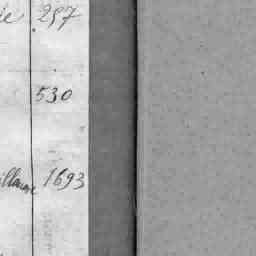 ie 297
530
illaume 1693